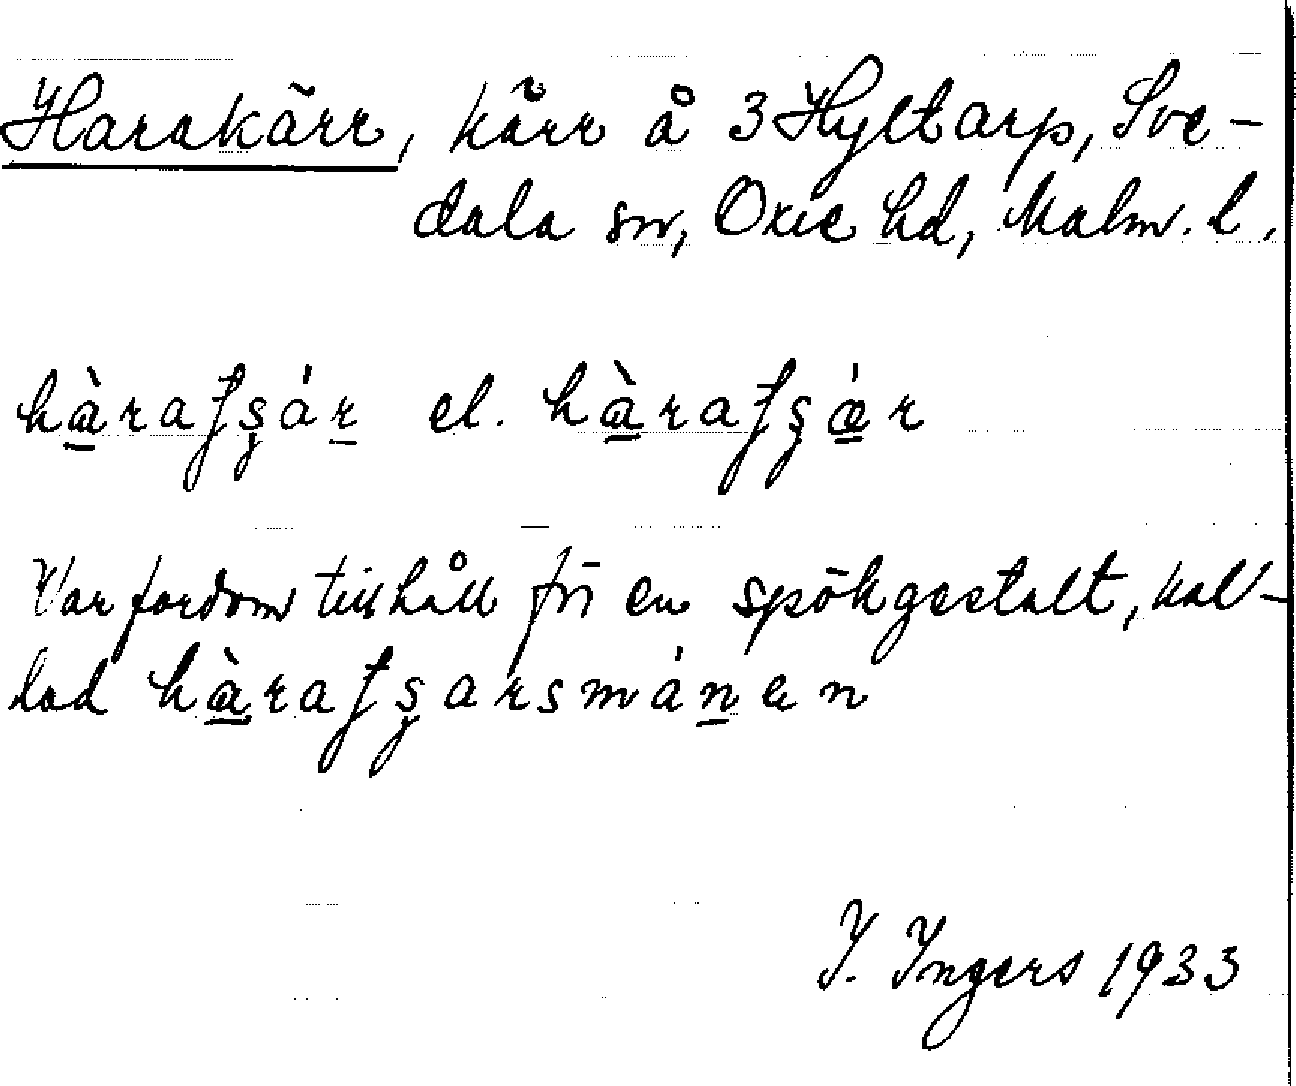 Harakärr, kärr å 3 Hyltarp, Sve-
dala sn, Oxie hd, Malm. l.
hà̱raʃʂáṟ el. hà̱raʃʂǽ̱r
Var fordom tillhåll för en spökgestalt, kal-
lad hà̱raʃʂarsmáṉen
I. Ingers 1933